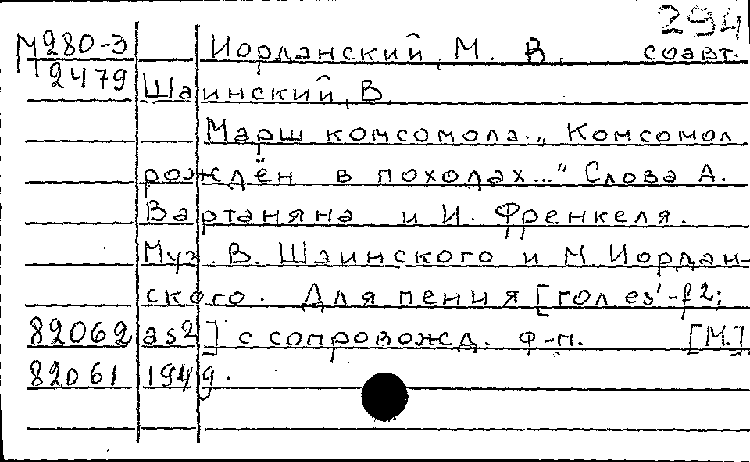 294
М280-3 Иорданский, М. В. соавт.
2479 Шаинский, В.
Марш комсомола. „Комсомол
рождён в походах..." Слова А.
Вартаняна и И. Френкеля.
Муз. В. Шаинского и М. Иордан-
ского. Для пения [гол es'-f2;
82062 as2] с сопровожд. ф-п. [М.]
82061 1949.